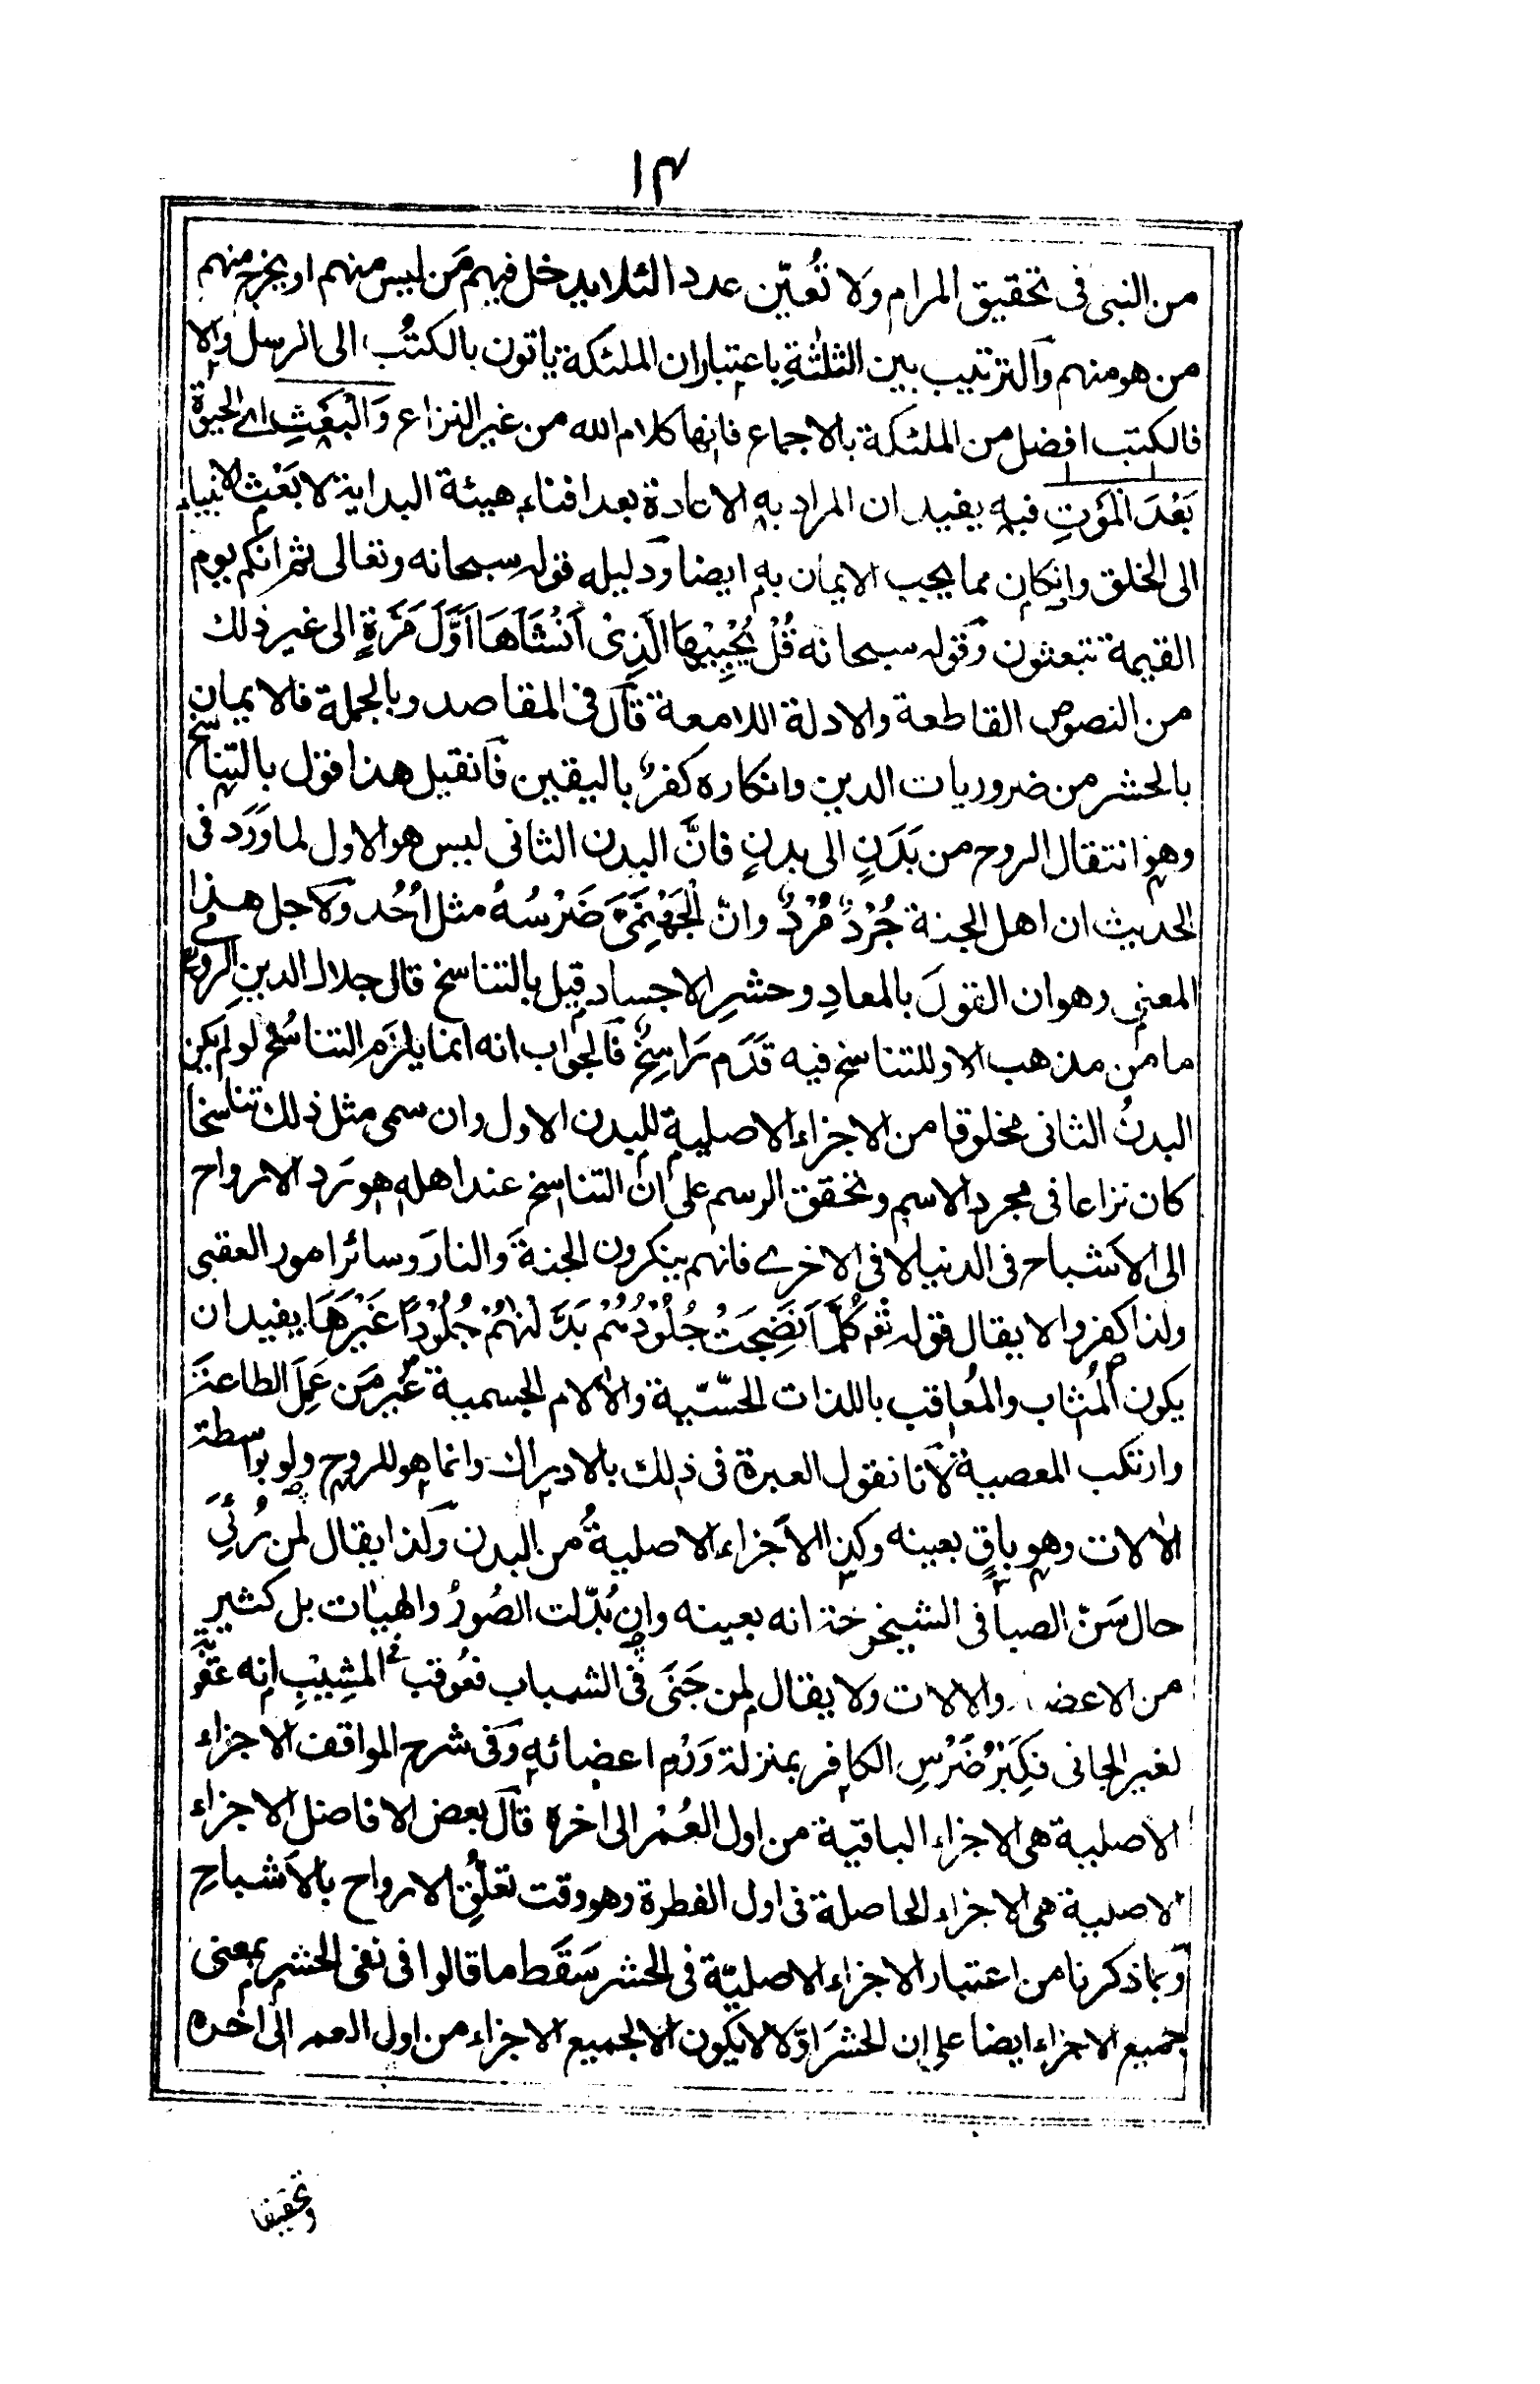 ١٣
من النبى فى تحقيق المرام ولا نُعيّن عدد الئلا يدخل فيهم مَن ليس منهم او يخرج منهم
من هو منهم والترتيب بين الثلثةِ باعتباران الملئكة ياتون بالكتُب الى الرسل والا
فالكتب افضل من الملئكة بالاجماع فانها كلام الله من غير النزاع وَالْبَعْثِ اى الحيوة
بَعْدَ الْمَوْتِ فيه يفيد ان المراد به الاعادة بعد افناء هيئة البداية لا بَعْث الانبياء
الى الخلق وانكان مما يجب الايمان به ايضا ودليله قوله سبحانه وتعالى ثم انكم يوم
القيمة تبعثون وقوله سبحانه قُلْ يُحْيِيْهَا الَّذِىْ اَنْشَاَهَا اَوَّلَ مَرَّةٍ الى غير ذلك
من النصوص القاطعة والادلة اللامعة قال فى المقاصد وبالجملة فالايمان
بالحشر من ضروريات الدين وانكاره كفرٌ باليقين فانقيل هذا قول بالتناسخ
وهو انتقال الروح من بَدَنٍ الى بدنٍ فانَّ البدن الثانى ليس هو الاول لما وَرَد فى
الحديث ان اهل الجنة جُرْدٌ مُرْدٌ وانّ الْجَهَنَّمِىَّ ضَرْسُهُ مثل اُحُد ولاجل هذا
المعنى وهو ان القولَ بالمعادِ وحشرِ الاجساد قيل بالتناسخ قال جلال الدين الرومى
ما من مذهب الا وللتناسخ فيه قَدَم رَاسِخٌ فالجواب انه انما يلزَم التناسُخ لو لم يكن
البدنُ الثانى مخلوقا من الاجزاء الاصلية للبدن الاول وان سمى مثل ذلك تناسخا
كان نزاعا فى مجرد الاسم وتحقق الرسم على ان التناسخ عند اهله هو رَد الارواح
الى الاشباح فى الدنيا لا فى الاخرى فانهم ينكرون الجنةَ والنارَ وسائر امور العقبى
ولذا كفروا لا يقال قوله تعم كُلَّمَا نَضِجَتْ جُلُوْدُهُمْ بَدَّلْنٰهُمْ جُلُوْدًا غَيْرَهَا يفيد ان
يكون المُثاب والمُعاقب باللذات الحسّيّة والالام الجسمية غير مَن عَمِلَ الطاعة
وارتكب المعصية لانا نقول العبرة فى ذلك بالادراك وانما هو للروح ولو بواسطة
الالات وهو باقٍ بعينه وكذا الاجزاء الاصليةُ من البدن ولذا يقال لمن رُئِىَ
حال سَنّ الصبا فى الشيخوخة انه بعينه وان بُدّلت الصُورُ والهيات بل كثير
من الاعضاء والالات ولا يقال لمن جَنَى فى الشباب فعُوقب فى المشِيبِ انه عقوبة
لغير الجانى فكِبَرُ ضَرْسِ الكافر بمنزلة وَرَم اعضائه وفى شرح المواقف الاجزاء
الاصلية هى الاجزاء الباقية من اول العُمْر الى اخره قال بعض الافاضل الاجزاء
الاصلية هى الاجزاء الحاصلة فى اول الفطرة وهو وقت تعلُّق الارواح بالاشباحِ
وبما ذكرنا من اعتبار الاجزاء الاصليّة فى الحشر سَقَط ما قالوا فى نفى الحشر بمعنى
جميع الاجزاء ايضا على ان الحشرَ اوّلا لا يكون الا لجميع الاجزاء من اول العمر الى اخره
وتحقيقا